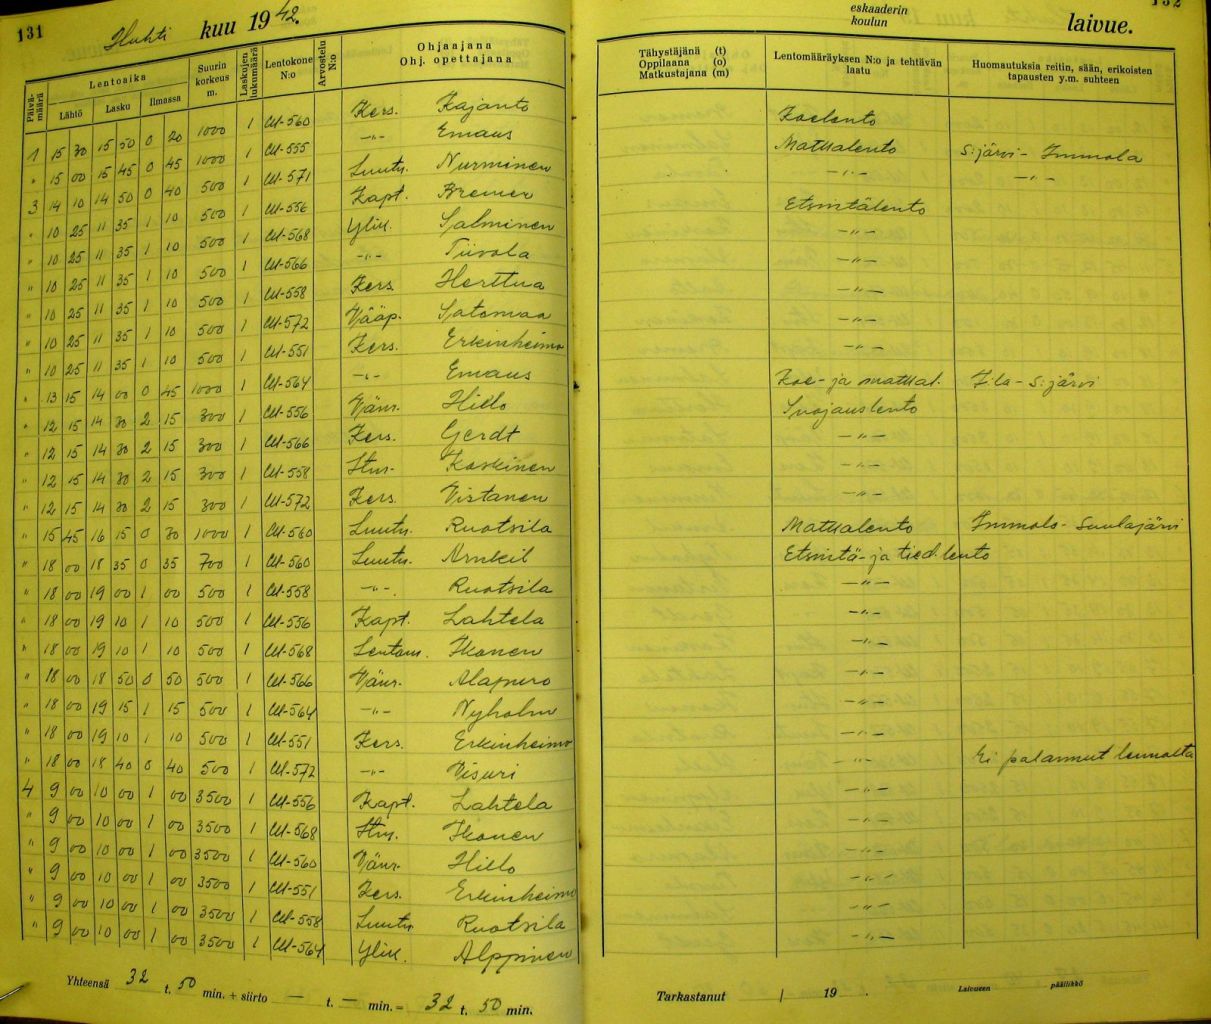 131 Huhti kuu 1942.
132
eskaaderin
koulun
laivue.
Päivämäärä Lentoaika Suurin korkeus m. Laskujen lukumäärä Lentokone N:o Arvostelu N:o Ohjaajana Ohj. opettajana Tähystäjänä (t) Oppilaana (o) Matkustajana (m) Lentomääräyksen N:o ja tehtävän laatu Huomautuksia reitin, sään, erikoisten tapausten y.m. suhteen
Lähtö Lasku Ilmassa
1 15 30 15 50 0 20 1000 1 CU-560 Kers. Kajanto Koelento
" 15 00 15 45 0 45 1000 1 CU-555 -"- Emaus Matkalento S:järvi - Immola
3 14 10 14 50 0 40 500 1 CU-571 Luutn. Nurminen -"- -"-
" 10 25 11 35 1 10 500 1 CU-556 Kapt. Bremer Etsintälento
" 10 25 11 35 1 10 500 1 CU-568 Ylik. Salminen -"-
" 10 25 11 35 1 10 500 1 CU-566 -"- Tiivola -"-
" 10 25 11 35 1 10 500 1 CU-558 Kers. Herttua -"-
" 10 25 11 35 1 10 500 1 CU-572 Vääp. Satomaa -"-
" 10 25 11 35 1 10 500 1 CU-551 Kers. Erkinheimo -"-
" 13 15 14 00 0 45 1000 1 CU-564 -"- Emaus Koe- ja matkal. I:la - S:järvi
" 12 15 14 30 2 15 300 1 CU-556 Vänr. Hillo Suojauslento
" 12 15 14 30 2 15 300 1 CU-566 Kers. Gerdt -"-
" 12 15 14 30 2 15 300 1 CU-558 Koskinen -"-
" 12 15 14 30 2 15 300 1 CU-572 Kers. Virtanen -"-
" 15 45 16 15 0 30 1000 1 CU-560 Luutn. Ruotsila Matkalento Immola - Suulajärvi
" 18 00 18 35 0 35 700 1 CU-560 Luutn. Arnkil Etsintä- ja tied.lento
" 18 00 19 00 1 00 500 1 CU-558 -"- Ruotsila -"-
" 18 00 19 10 1 10 500 1 CU-556 Kapt. Lahtela -"-
" 18 00 19 10 1 10 500 1 CU-568 Lentom. Ikonen -"-
" 18 00 18 50 0 50 500 1 CU-566 Vänr. Alapuro -"-
" 18 00 19 15 1 15 500 1 CU-564 -"- Nyholm -"-
" 18 00 19 10 1 10 500 1 CU-551 Kers. Erkinheimo -"-
" 18 00 18 40 0 40 500 1 CU-572 -"- Visuri -"- Ei palannut lennolta
4 9 00 10 00 1 00 3500 1 CU-556 Kapt. Lahtela -"-
" 9 00 10 00 1 00 3500 1 CU-568 Ikonen -"-
" 9 00 10 00 1 00 3500 1 CU-560 Vänr. Hillo -"-
" 9 00 10 00 1 00 3500 1 CU-551 Kers. Erkinheimo -"-
" 9 00 10 00 1 00 3500 1 CU-558 Luutn. Ruotsila -"-
" 9 00 10 00 1 00 3500 1 CU-564 Ylik. Alppinen -"-
Yhteensä 32 t. 50 min. + siirto — t. — min. = 32 t. 50 min.
Tarkastanut / 19 . Laivueen päällikkö